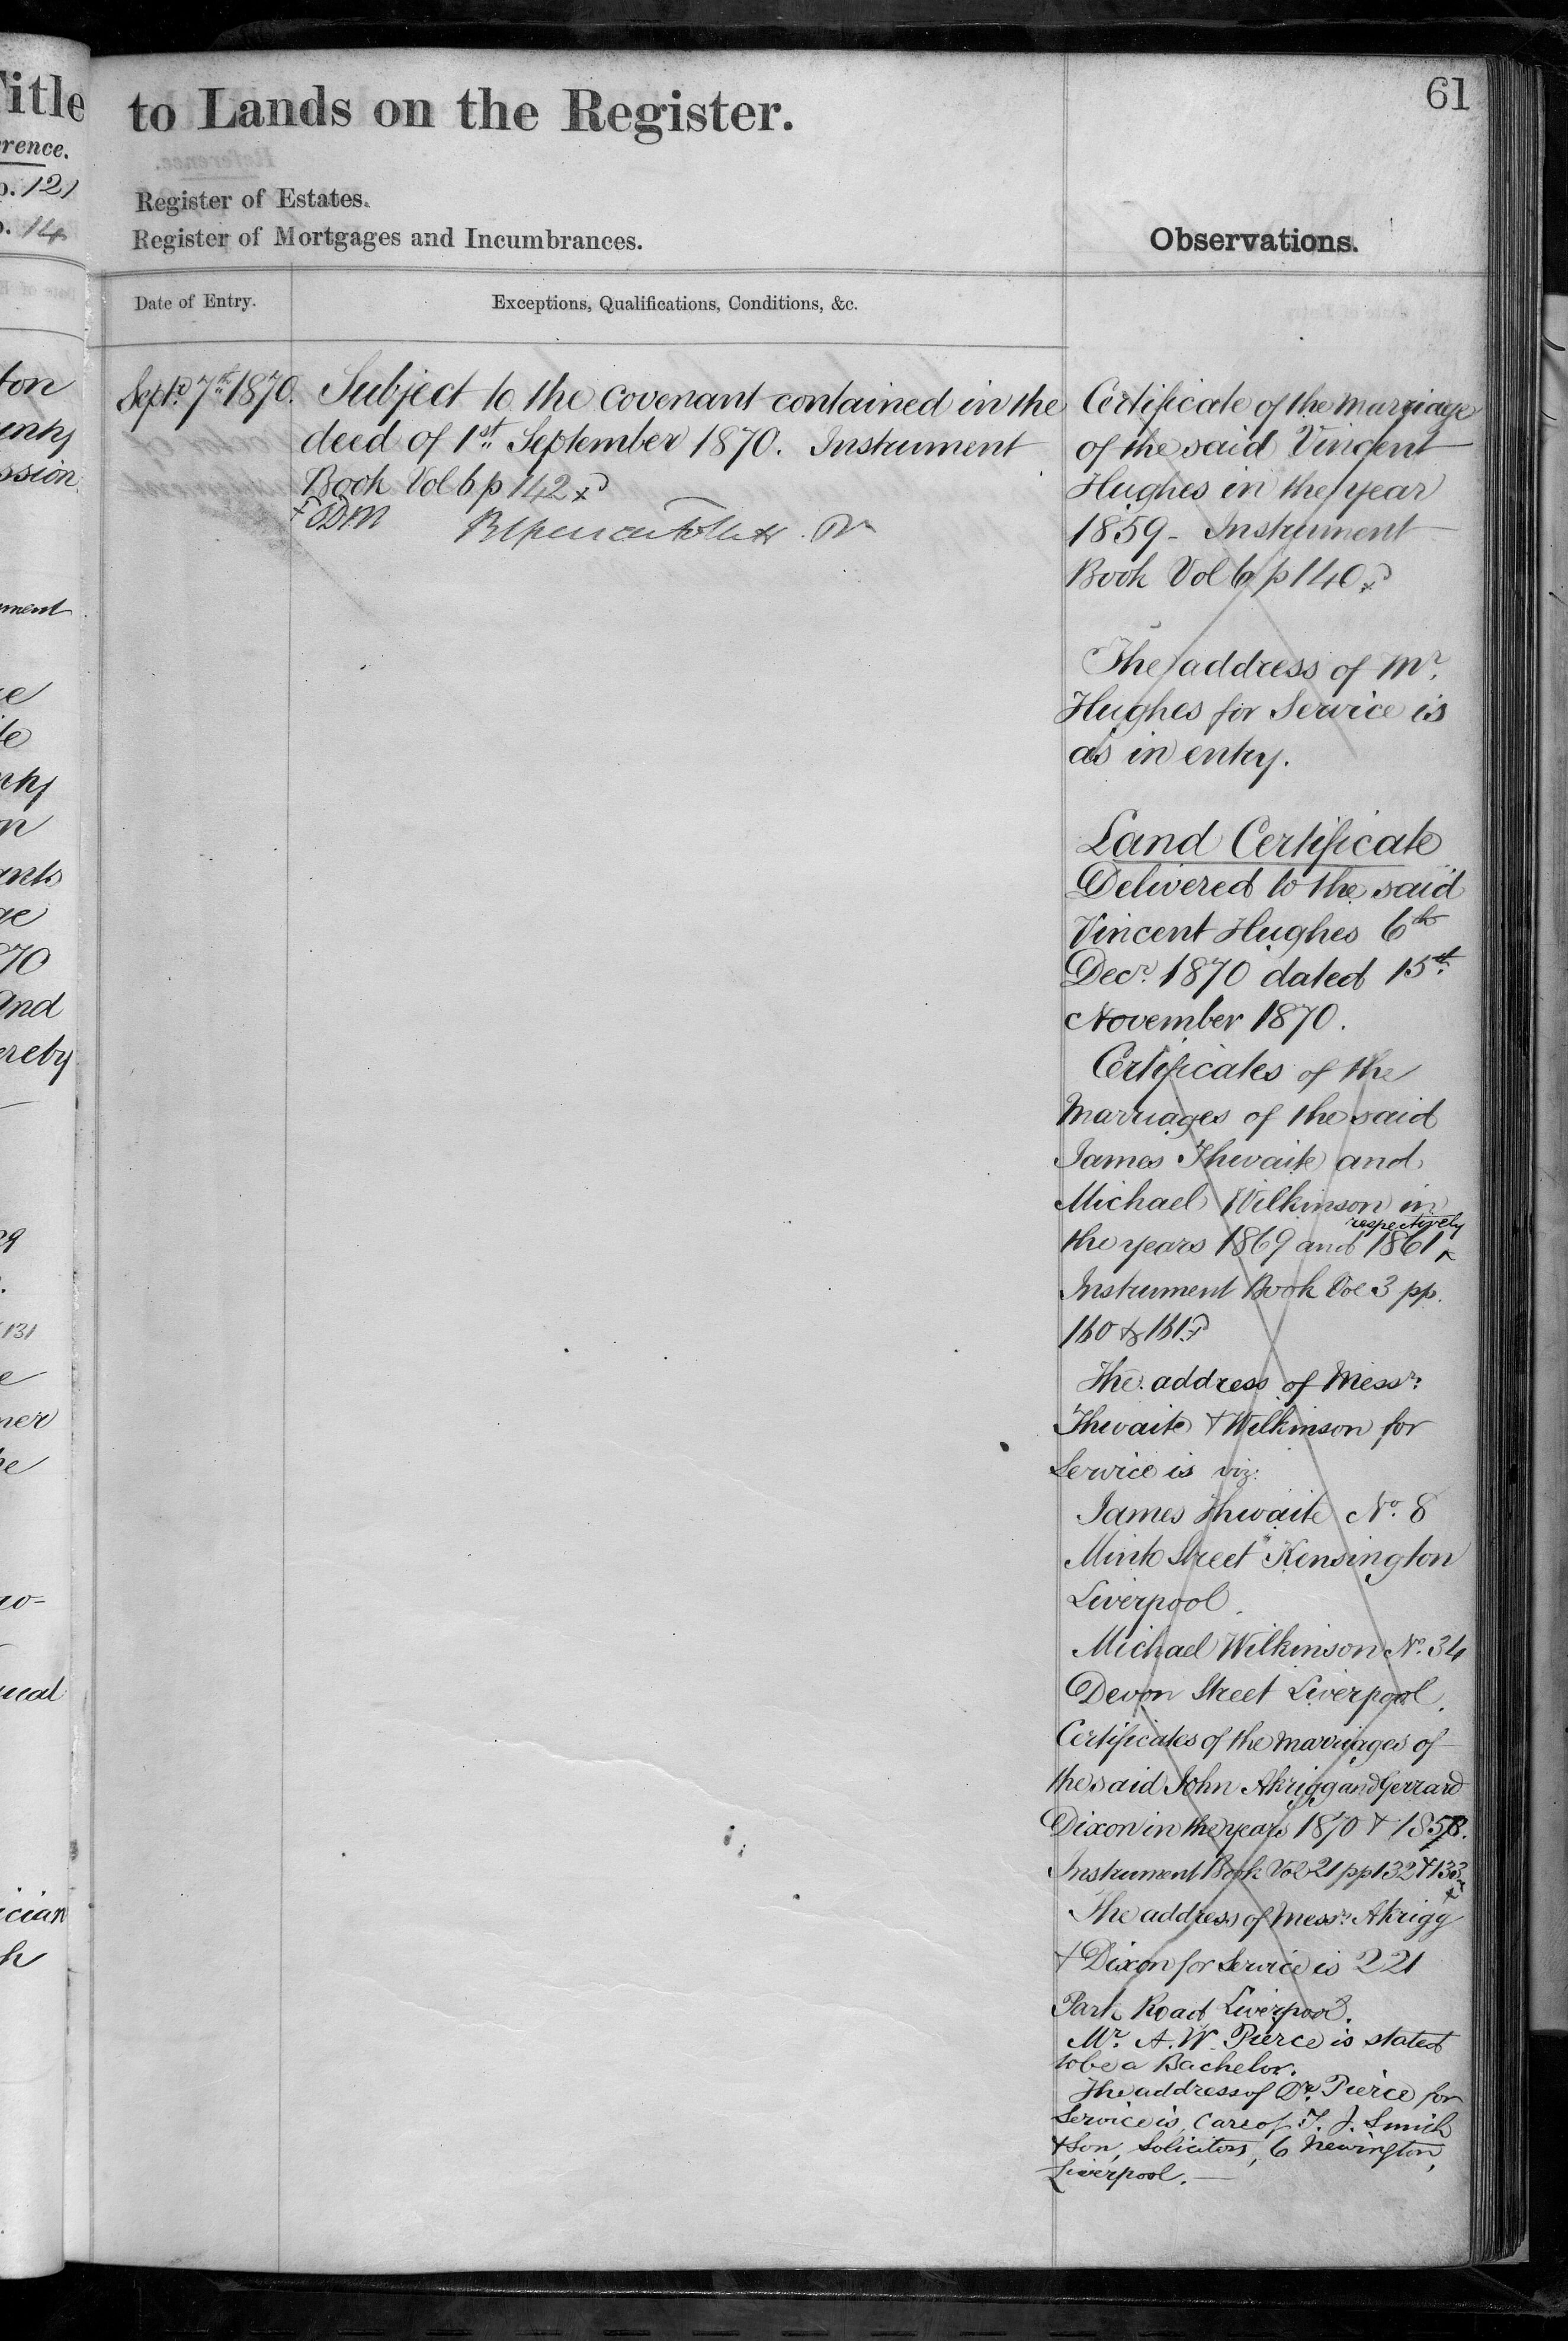 Title
rence.
p. 121
o. 14
to Lands on the Register.
61
Register of Estates.
Register of Mortgages and Incumbrances.
Observations.
Date of Entry.
Exceptions, Qualifications, Conditions, &c.
Septr. 7th 1870.
Subject to the covenant contained in the
deed of 1st September 1870. Instrument
Book Vol 6 p 142
Certificate of the marriage
of the said Vincent
Hughes in the year
1859 - Instrument
Book Vol 6 p 140
The address of Mr.
Hughes for Service is
as in entry.
Land Certificate
Delivered to the said
Vincent Hughes 6th
Decr. 1870 dated 15th
November 1870.
Certificates of the
Marriages of the said
James Thwaite and
Michael Wilkinson in
respectively
the years 1869 and 1861
Instrument Book Vol 3 pp.
160 & 161
The address of Messrs.
Thwaite & Wilkinson for
Service is viz:
James Thwaite No. 8
Minto Street Kensington
Liverpool.
Michael Wilkinson No. 34
Devon Street Liverpool.
Certificates of the marriages of
the said John Akrigg and Gerrard
Dixon in the years 1870 & 1858.
Instrument Book Vol 21 pp 132 & 133
The address of Messrs. Akrigg
& Dixon for Service is 221
Park Road Liverpool.
Mr. A. W. Pierce is stated
to be a Bachelor.
The address of Dr. Pierce for
Service is, Care of T. J. Smith
& Son, Solicitors, 6 Newington,
Liverpool. —
ton
ssion
ment
870
and
ereby
131
ician